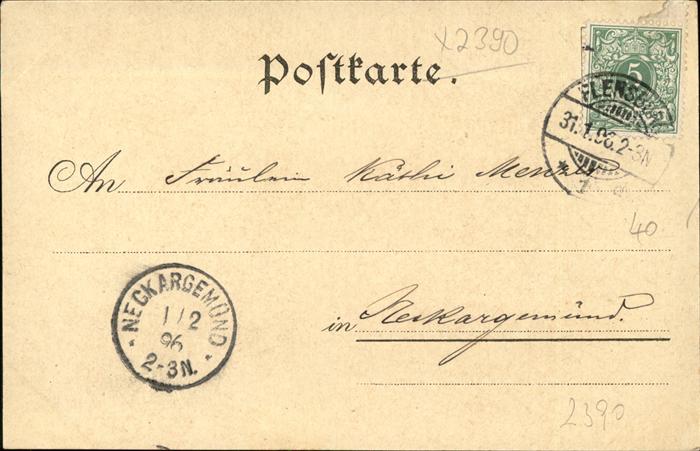 x2390
Postkarte.
5
FLENSBURG
31.1.96.2-3N
* 1 
An Fräulein Käthi
40
NECKARGEMÜND
1/2
96
2-3N.
in Neckargemünd.
2390